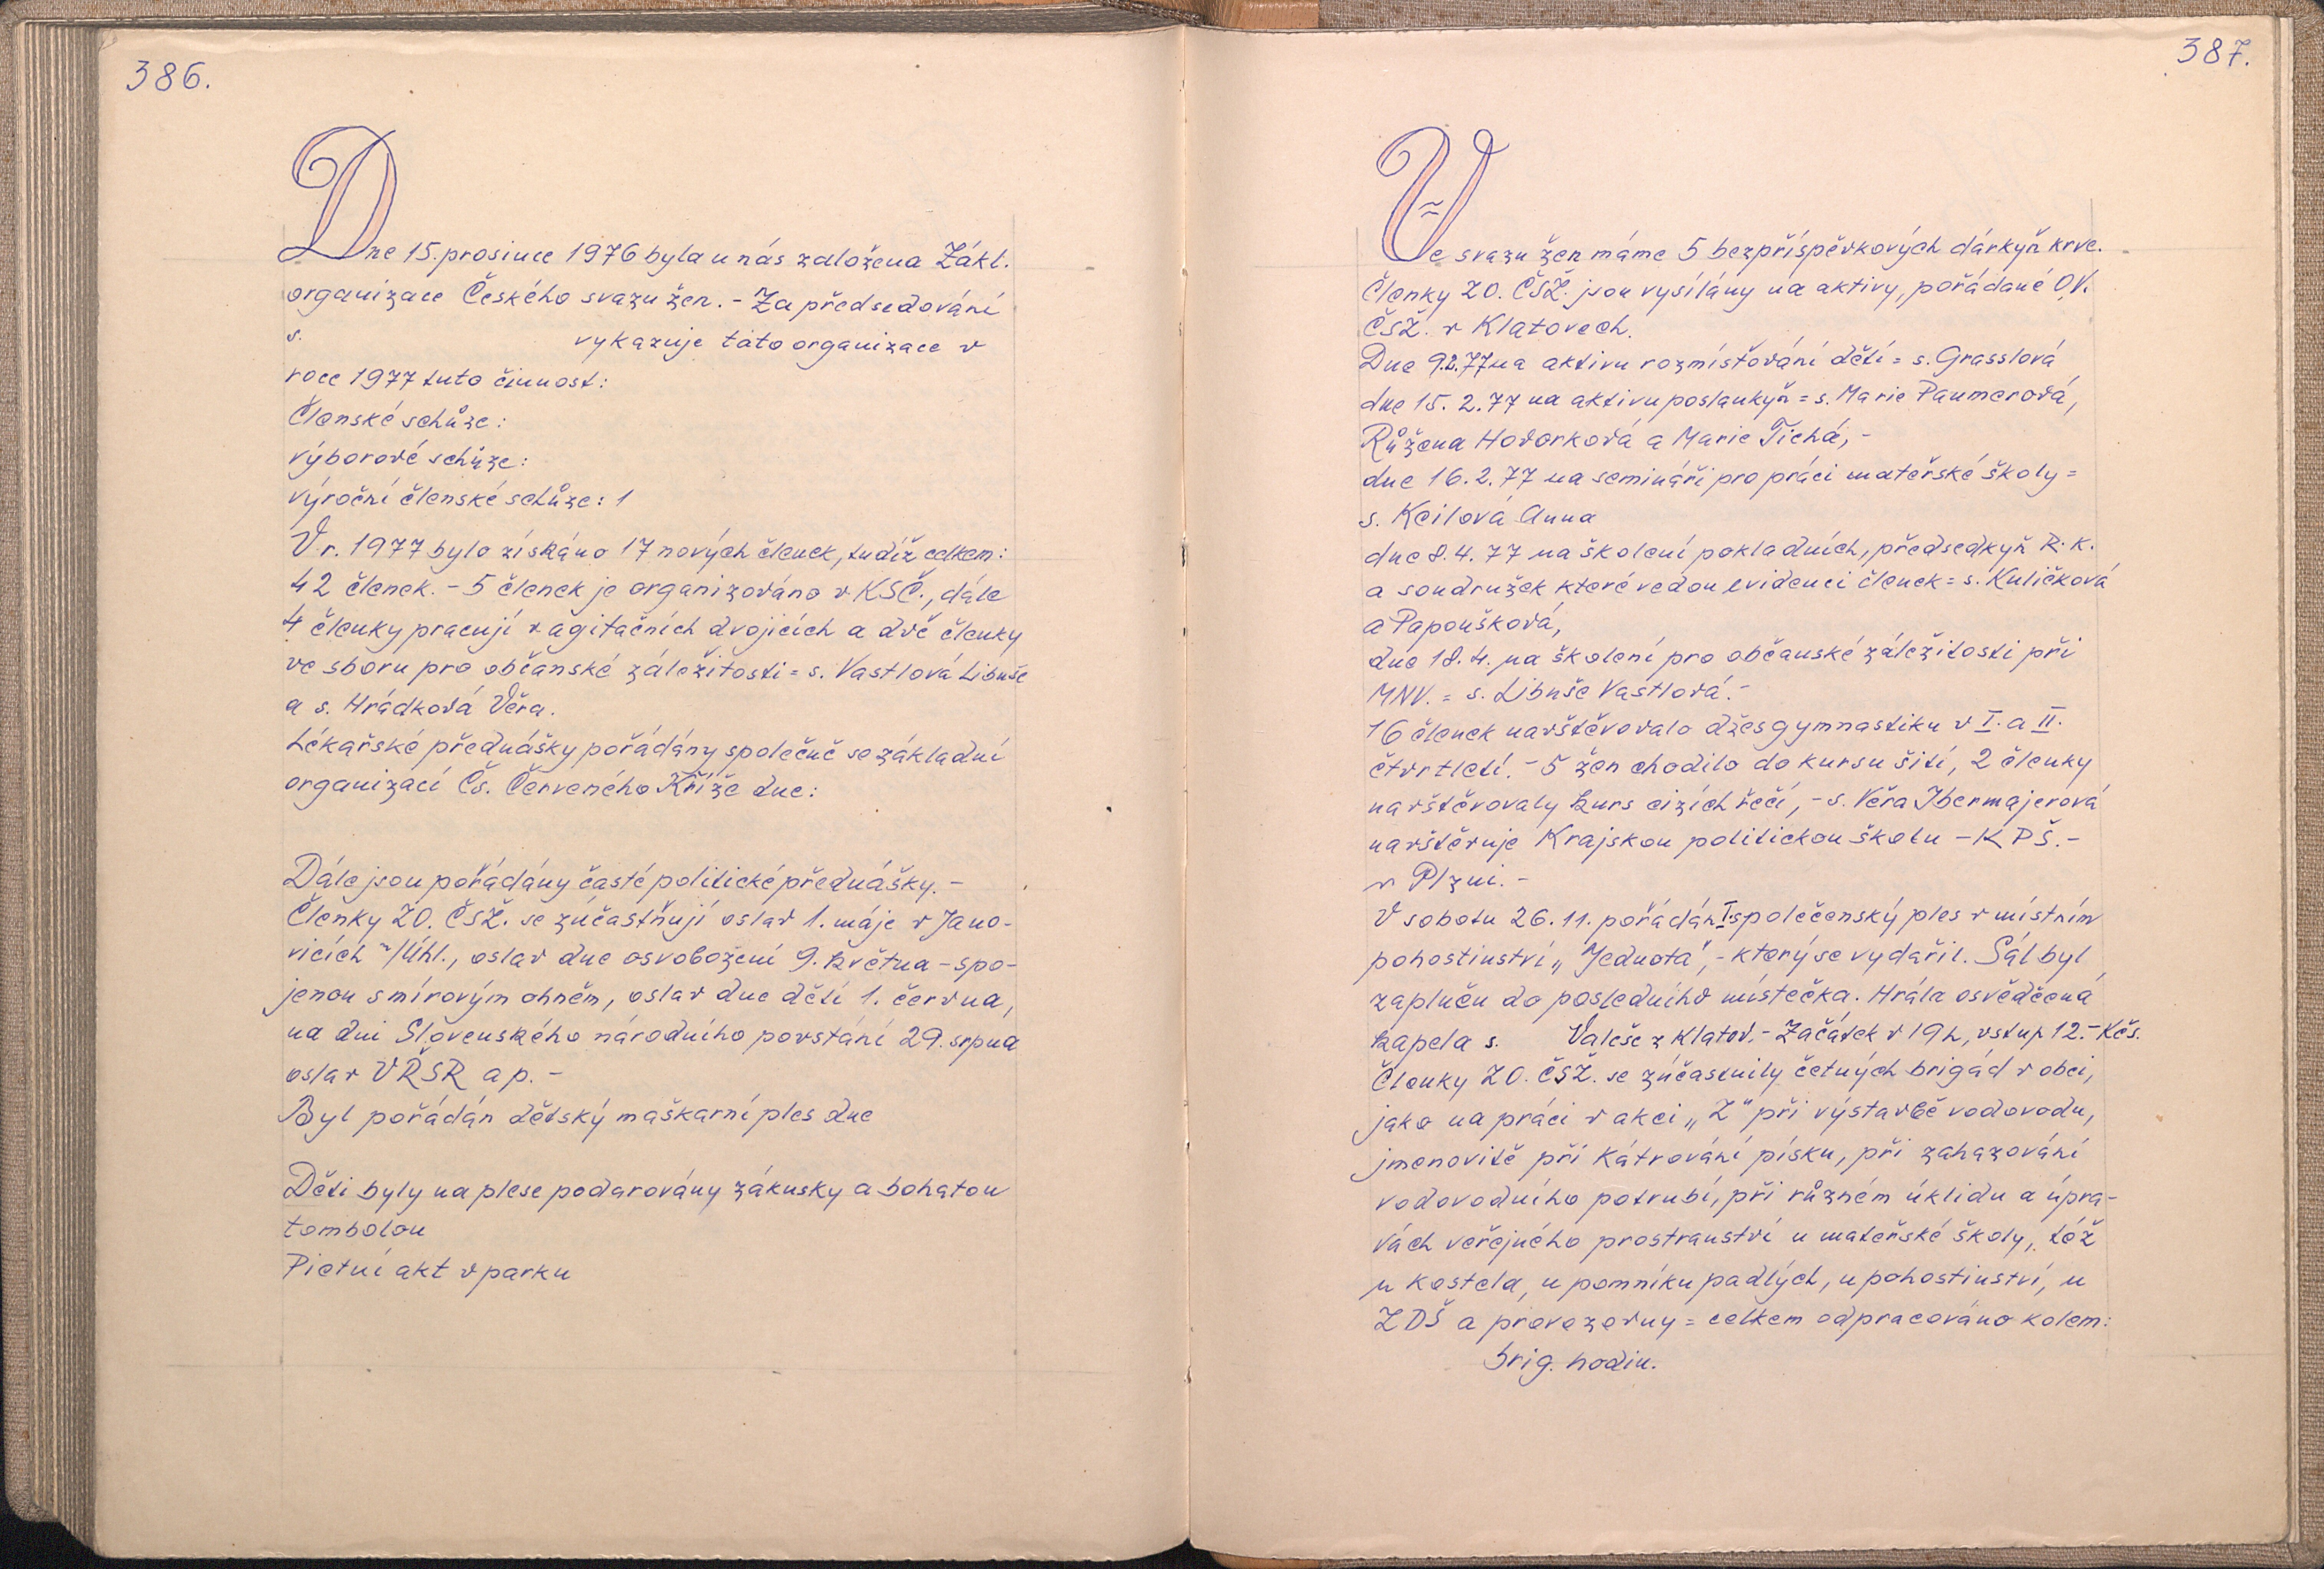 386.
Dne 15. prosince 1976 byla u nás založena Zákl.
organizace Českého svazu žen. - Za předsedování
s. vykazuje tato organizace v
roce 1977 tuto činnost:
Členské schůze:
výborové schůze:
výroční členské schůze: 1
V r. 1977 bylo získáno 17 nových členek, tudíž celkem:
42 členek. - 5 členek je organizováno v KSČ., dále
4 členky pracují v agitačních dvojicích a dvě členky
ve sboru pro občanské záležitosti = s. Vastlová Libuše
a s. Hrádková Věra.
Lékařské přednášky pořádány společně se základní
organizací Čs. Červeného Kříže dne:
Dále jsou pořádány časté politické přednášky. -
Členky ZO. ČSŽ. se zúčastňují oslav 1. máje v Jano-
vicích n/Úhl., oslav dne osvobození 9. května - spo-
jenou smírovým ohněm, oslav dne dětí 1. června,
na dni Slovenského národního povstání 29. srpna
oslav VŘSR ap. -
Byl pořádán dětský maškarní ples dne
Děti byly na plese podarovány zákusky a bohatou
tombolou
Pietní akt v parku
387.
Ve svazu žen máme 5 bezpříspěvkových dárkyň krve.
Členky ZO. ČSŽ. jsou vysílány na aktivy, pořádané O.V.
ČSŽ. v Klatovech.
Dne 9.2.77 na aktivu rozmísťování dětí = s. Grasslová
dne 15. 2. 77 na aktivu poslankyň = s. Marie Paumerová,
Růžena Hovorková a Marie Tichá, -
dne 16. 2. 77 na semináři pro práci mateřské školy =
s. Keilová Anna
dne 8. 4. 77 na školení pokladních, předsedkyň R. k.
a soudružek které vedou evidenci členek = s. Kuličková
a Papoušková,
dne 18. 4. na školení pro občanské záležitosti při
MNV. = s. Libuše Vastlová. -
16 členek navštěvovalo džesgymnastiku v I. a II.
čtvrtletí. - 5 žen chodilo do kursu šití, 2 členky
navštěvovaly kurs cizích řečí, - s. Věra Ibermajerová
navštěvuje Krajskou politickou školu - KPŠ. -
v Plzni. -
V sobotu 26. 11. pořádán I společenský ples v místním
pohostinství „Jednota", - který se vydařil. Sál byl
zaplněn do posledního místečka. Hrála osvědčená
kapela s. Valeše z Klatov. - Začátek v 19h, vstup 12.- Kčs.
Členky ZO. ČSŽ. se zúčastnily četných brigád v obci,
jako na práci v akci „Z" při výstavbě vodovodu,
jmenovitě při kátrování písku, při zahazování
vodovodního potrubí, při různém úklidu a úpra-
vách veřejného prostranství u mateřské školy, též
u kostela, u pomníku padlých, u pohostinství, u
ZDŠ a provozovny = celkem odpracováno kolem:
brig. hodin.